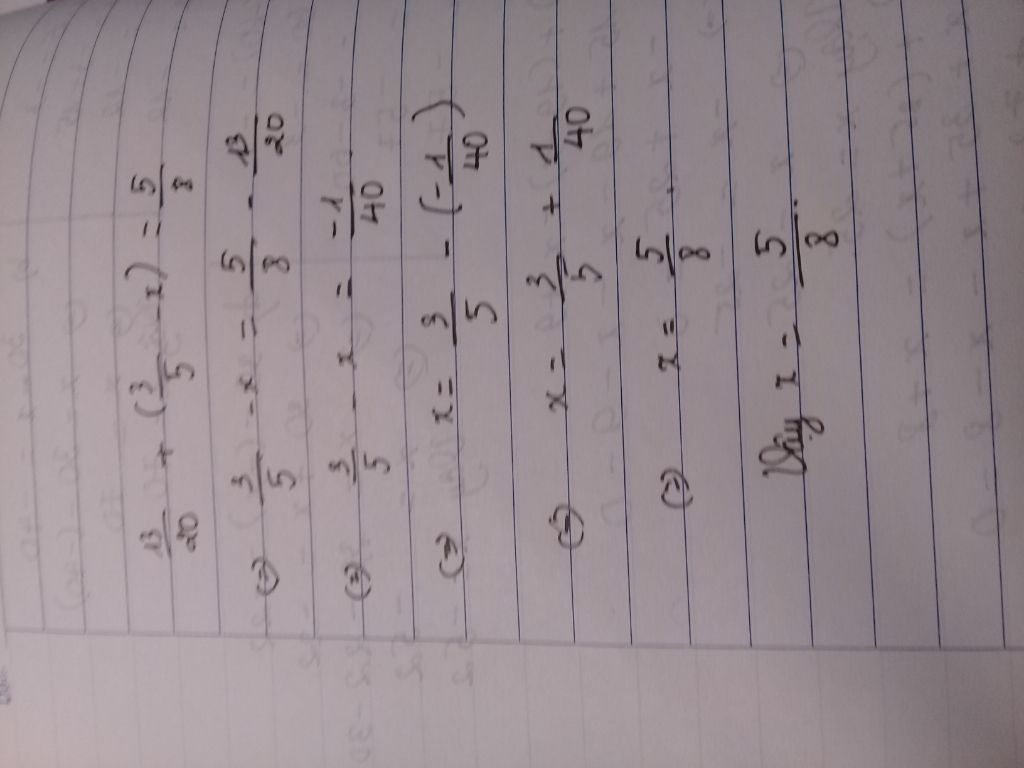 13/20 + (3/5 - x) = 5/8
(=) 3/5 - x = 5/8 - 13/20
(=) 3/5 - x = -1/40
(=) x = 3/5 - (-1/40)
(=) x = 3/5 + 1/40
(=) x = 5/8
Vậy x = 5/8.